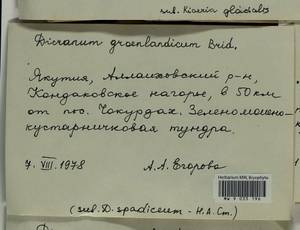 sub. Kiaeria glacialis
Dicranum groenlandicum Brid.
Якутия, Аллаиховский р-н,
Кондаковское нагорье, в 50 км
от пос. Чокурдах. Зеленомошно-
кустарничковая тундра.
7. VIII. 1978
А. А. Егорова
Herbarium MW, Bryophyta
(sub. D. spadiceum - H.A. Cm.)